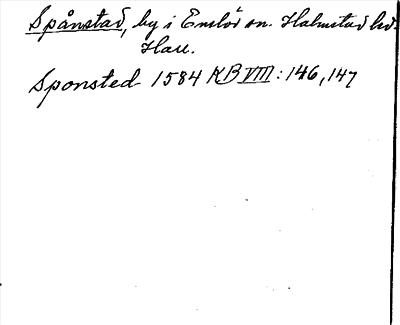 Spånstad, by i Enslöv sn. Halmstad hd.
Hall.
Sponsted 1584 KB VIII: 146, 147